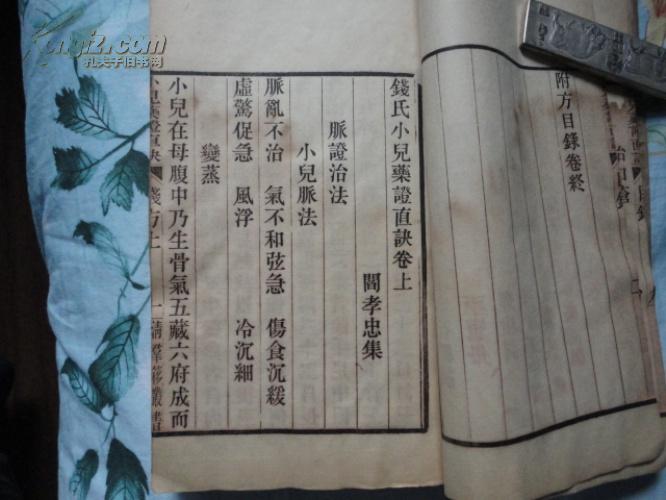 附方目錄卷終
錢氏小兒藥證直訣卷上
閻孝忠集
脈證治法
小兒脈法
脈亂不治　氣不和弦急　傷食沉緩
虛驚促急　風浮　冷沉細
變蒸
小兒在母腹中乃生骨氣五藏六府成而
小兒藥證直訣
錢方上
一
Kongfz.com
孔夫子旧书网